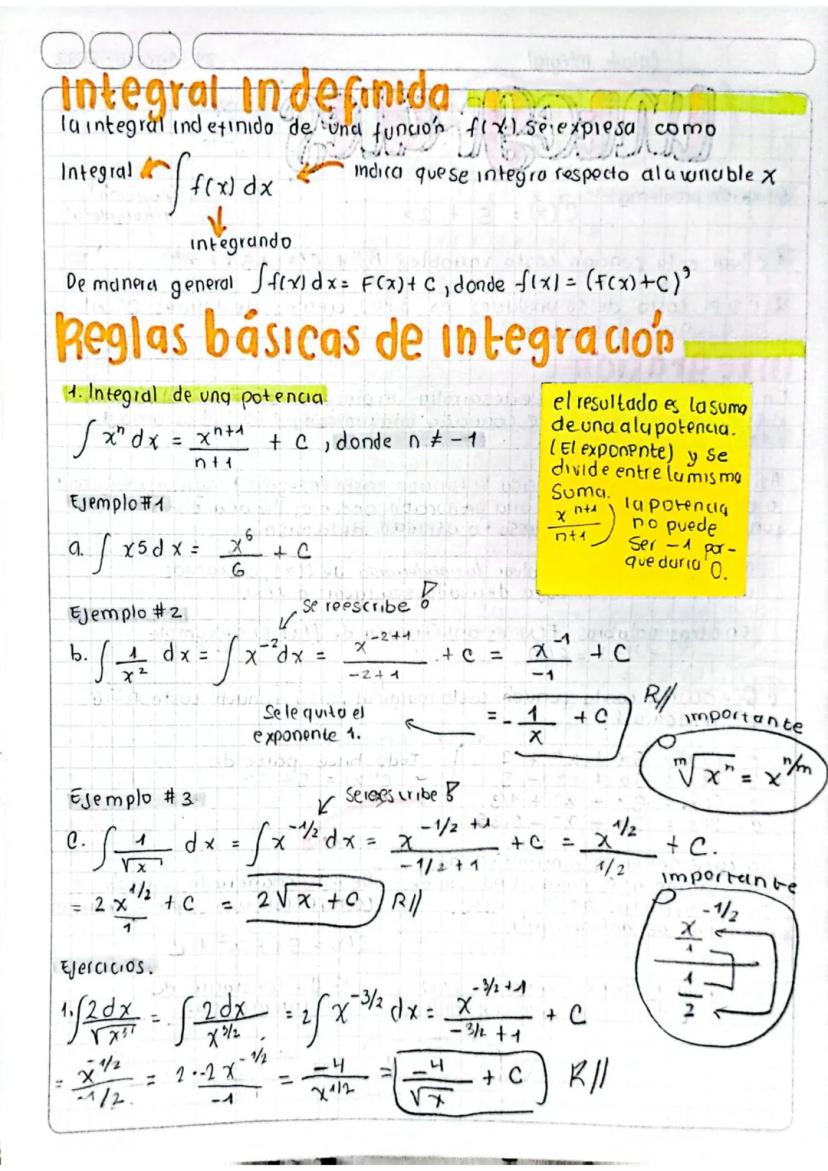 Integral Indefinida
la integral indefinido de una función f(x) se expresa como
Integral ∫ f(x) dx indica que se integra respecto a la variable x
integrando
De manera general ∫ f(x) dx = F(x) + C, donde f(x) = (F(x)+C)'
Reglas básicas de integración
1. Integral de una potencia
∫ xⁿ dx = xⁿ⁺¹/n+1 + C, donde n ≠ -1
el resultado es la suma
de una a la potencia.
(El exponente) y se
divide entre la misma
suma.
xⁿ⁺¹/n+1 ) la potencia
no puede
ser -1 por-
que daria 0.
Ejemplo #1
a. ∫ x5 dx = x⁶/6 + C
Ejemplo #2
Se reescribe
b. ∫ 1/x² dx = ∫ x⁻² dx = x⁻²⁺¹/-2+1 + C = x⁻¹/-1 + C
= - 1/x + C R//
Se le quita el
exponente 1.
importante
ᵐ√xⁿ = x^n/m
Ejemplo #3
Se reescribe
C. ∫ 1/√x dx = ∫ x^-1/2 dx = x^-1/2+1/-1/2+1 + C = x^1/2/1/2 + C.
= 2x^1/2/1 + C = 2√x + C R//
importante
x^-1/2/1
1/2
Ejercicios.
1. ∫ 2dx/√x³ = ∫ 2dx/x^3/2 = 2∫ x^-3/2 dx = x^-3/2+1/-3/2+1 + C
= x^-1/2/-1/2 = 2·-2x^-1/2/-1 = -4/x^1/2 = -4/√x + C R//